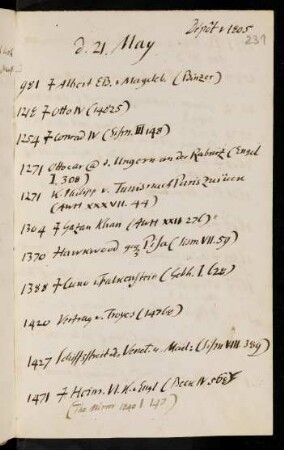 Dépôt v 1805
239
d. 21. May
981 † Adalbert EB. v Magdeb. (Binzer)
1218 † Otto IV (14825)
1254 † Conrad IV (Sism. III 148)
1271 Ottocar @ d. Ungern an der Rabnitz (Engel
I. 308)
1271 K. Philipp v. Tunis nach Paris zurück
(AWH XXXVII. 44)
1304 † Gazan Khan (AWH XXII 276)
1370 Hawkwood geg Pisa (Sism VII. 59)
1388 † Cuno v Falkenstein (Gebh. I. 628)
1420 Vertrag v. Troyes (14768)
1427 Schiffsstreit d. Venet. u. Mail. (Sism VIII. 389)
1471 † Heinr. VI. K. v Engl (Beca IV. 568)
(The Mirror 1840 I 147)